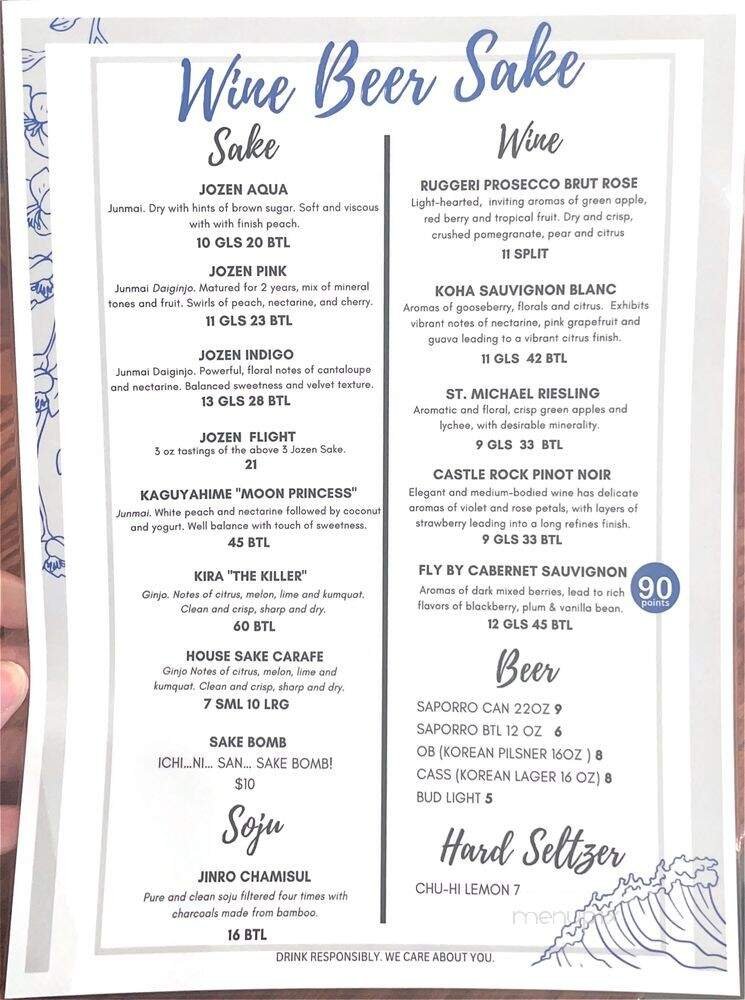 Wine Beer Sake
Sake
JOZEN AQUA
Junmai. Dry with hints of brown sugar. Soft and viscous
with with finish peach.
10 GLS 20 BTL
JOZEN PINK
Junmai Daiginjo. Matured for 2 years, mix of mineral
tones and fruit. Swirls of peach, nectarine, and cherry.
11 GLS 23 BTL
JOZEN INDIGO
Junmai Daiginjo. Powerful, floral notes of cantaloupe
and nectarine. Balanced sweetness and velvet texture.
13 GLS 28 BTL
JOZEN FLIGHT
3 oz tastings of the above 3 Jozen Sake.
21
KAGUYAHIME "MOON PRINCESS"
Junmai. White peach and nectarine followed by coconut
and yogurt. Well balance with touch of sweetness.
45 BTL
KIRA "THE KILLER"
Ginjo. Notes of citrus, melon, lime and kumquat.
Clean and crisp, sharp and dry.
60 BTL
HOUSE SAKE CARAFE
Ginjo Notes of citrus, melon, lime and
kumquat. Clean and crisp, sharp and dry.
7 SML 10 LRG
SAKE BOMB
ICHI...NI... SAN... SAKE BOMB!
$10
Soju
JINRO CHAMISUL
Pure and clean soju filtered four times with
charcoals made from bamboo.
16 BTL
Wine
RUGGERI PROSECCO BRUT ROSE
Light-hearted, inviting aromas of green apple,
red berry and tropical fruit. Dry and crisp,
crushed pomegranate, pear and citrus
11 SPLIT
KOHA SAUVIGNON BLANC
Aromas of gooseberry, florals and citrus. Exhibits
vibrant notes of nectarine, pink grapefruit and
guava leading to a vibrant citrus finish.
11 GLS 42 BTL
ST. MICHAEL RIESLING
Aromatic and floral, crisp green apples and
lychee, with desirable minerality.
9 GLS 33 BTL
CASTLE ROCK PINOT NOIR
Elegant and medium-bodied wine has delicate
aromas of violet and rose petals, with layers of
strawberry leading into a long refines finish.
9 GLS 33 BTL
FLY BY CABERNET SAUVIGNON
Aromas of dark mixed berries, lead to rich
flavors of blackberry, plum & vanilla bean.
12 GLS 45 BTL
90
points
Beer
SAPORRO CAN 22OZ 9
SAPORRO BTL 12 OZ 6
OB (KOREAN PILSNER 16OZ ) 8
CASS (KOREAN LAGER 16 OZ) 8
BUD LIGHT 5
Hard Seltzer
CHU-HI LEMON 7
DRINK RESPONSIBLY. WE CARE ABOUT YOU.